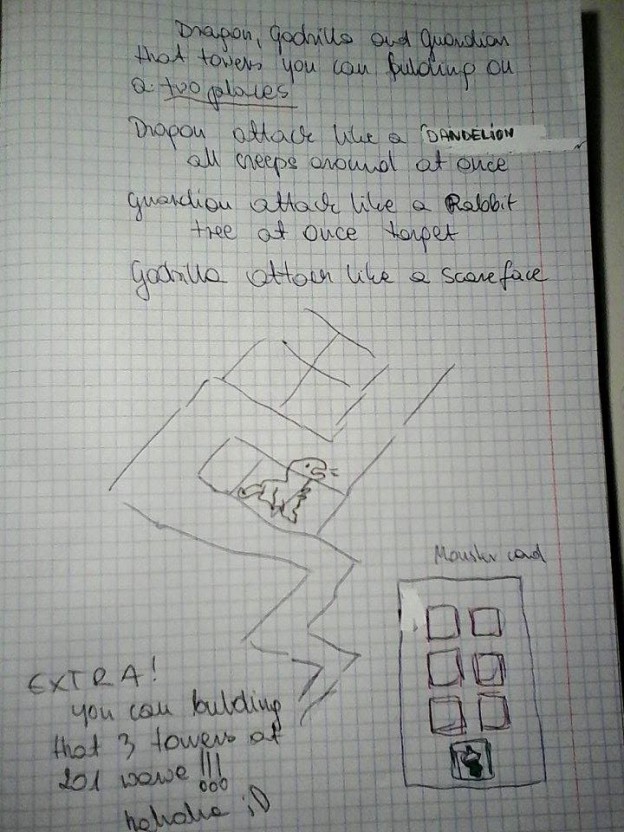 Dragon, Godzilla and Guardian
that towers you can bulding on
a two places
Dragon attack like a DANDELION
all creeps around at once
guardian attack like a Rabbit
tree at once target
Godzilla attack like a scareface
Monster card
EXTRA!
you can bulding
that 3 towers at
201 wawe!!!
hahaha ;D